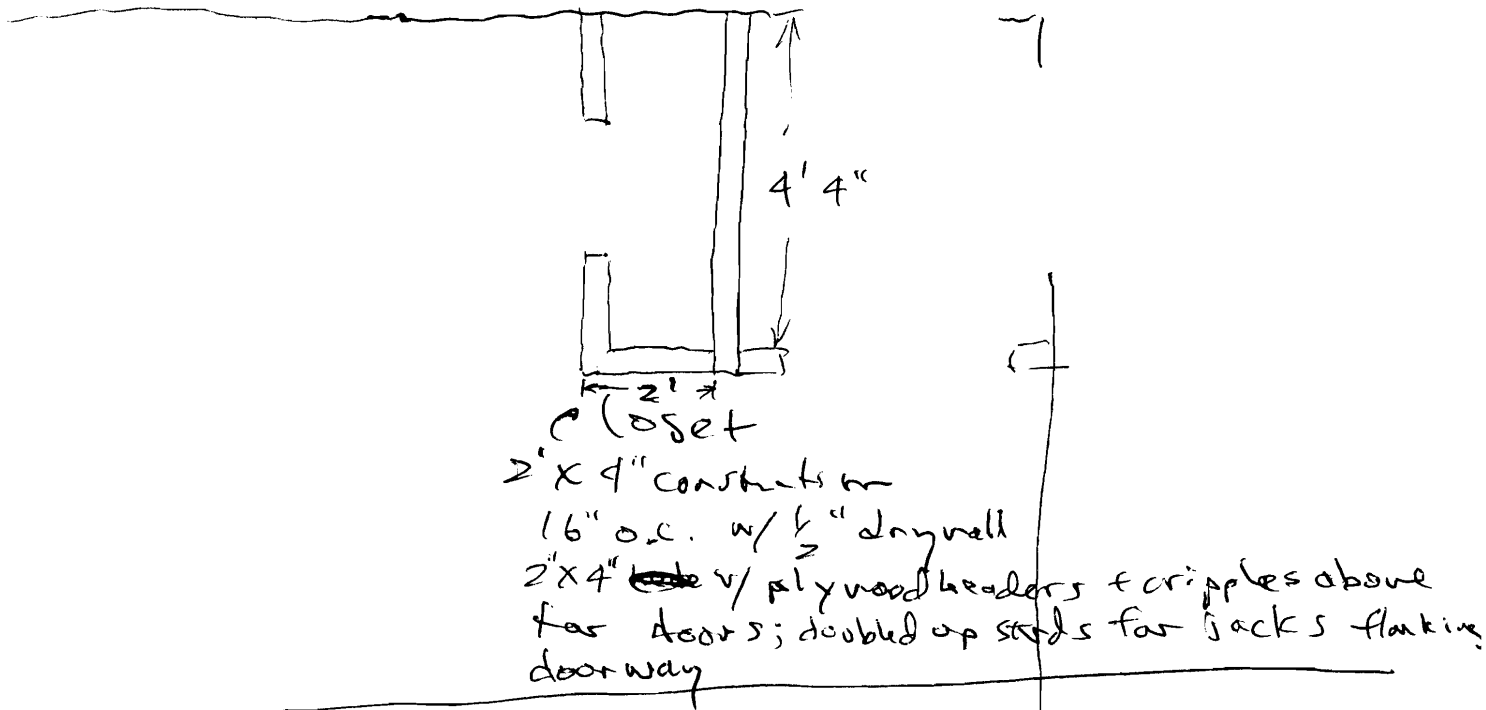 4' 4"
2'
Closet
2"X4" construction
16" o.c. w/ 1/2" drywall
2"X4" w/ plywood headers + cripples above
for doors; doubled up studs for jacks flanking
doorway